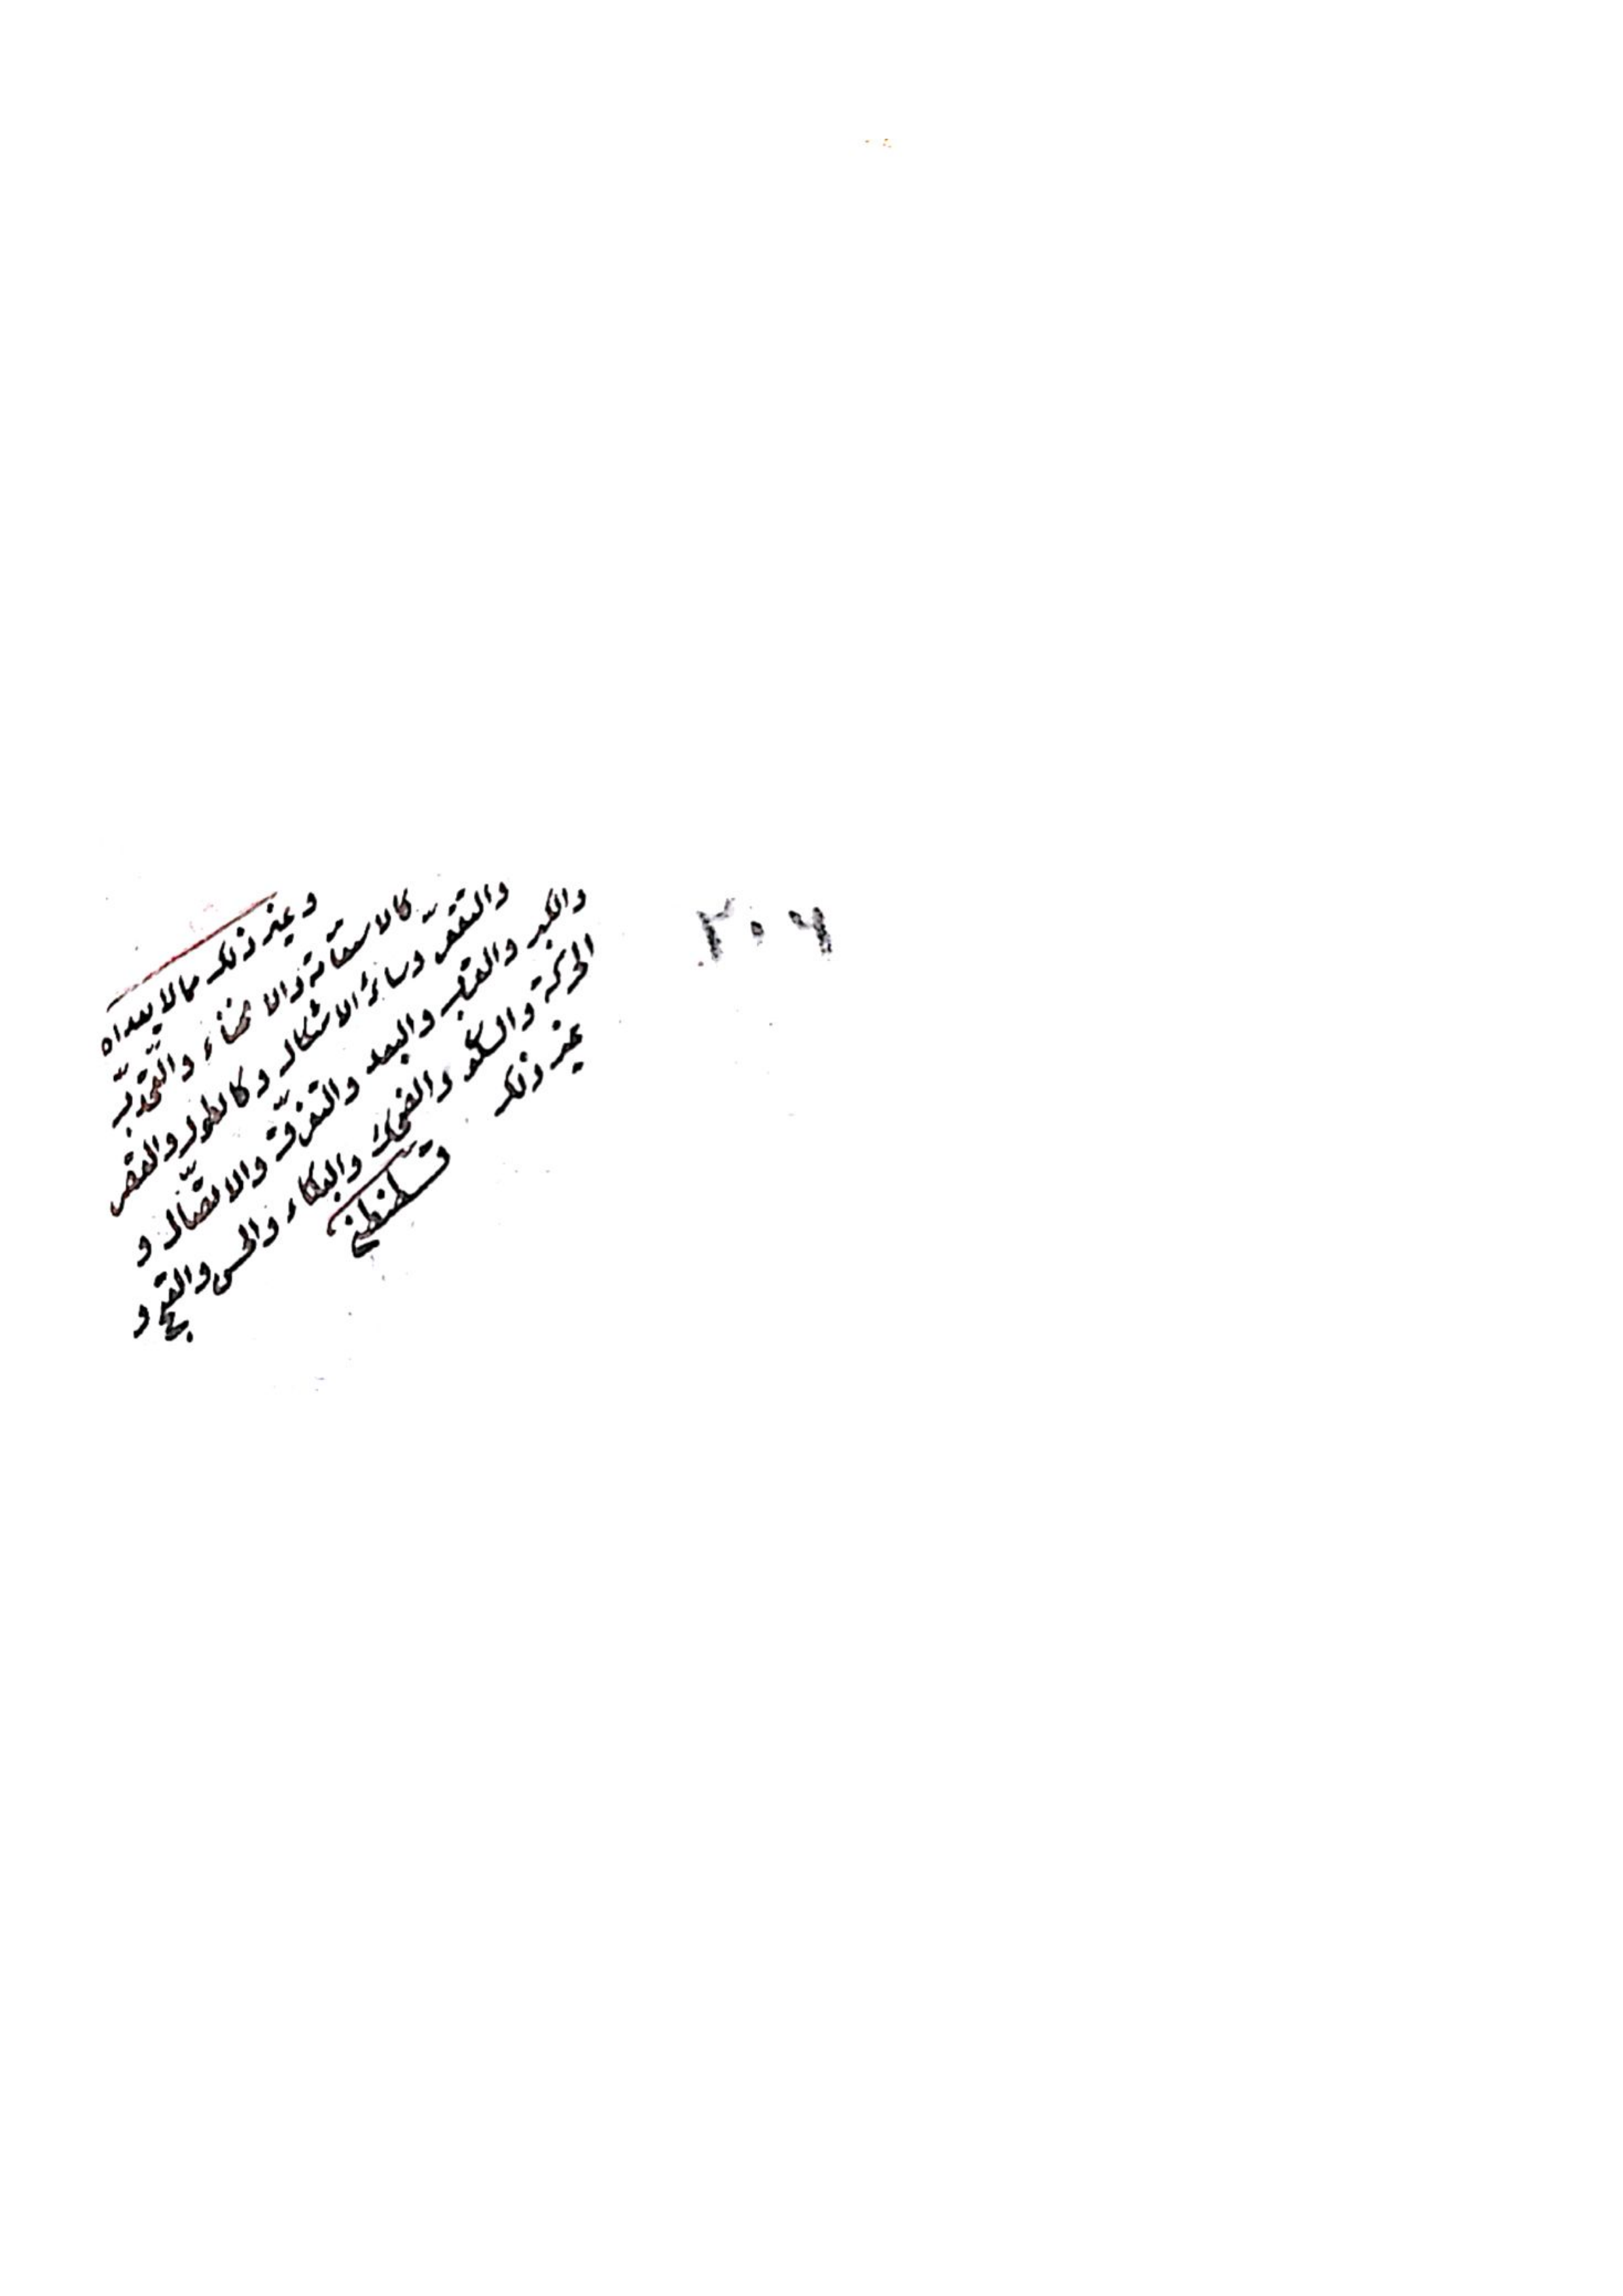 وغير ذلك مما لا يعداه
كالاستقامة والانحناء والتحدّب
والتقعّر وسائر الاشكال وكالطول والقصر
والكبر والقرب والبعد والتفرّق والاتصال و
الحركة والسكون والضحك والبكاء والحسن والقبح و
غير ذلك
قسطنطنى
٢٠٦